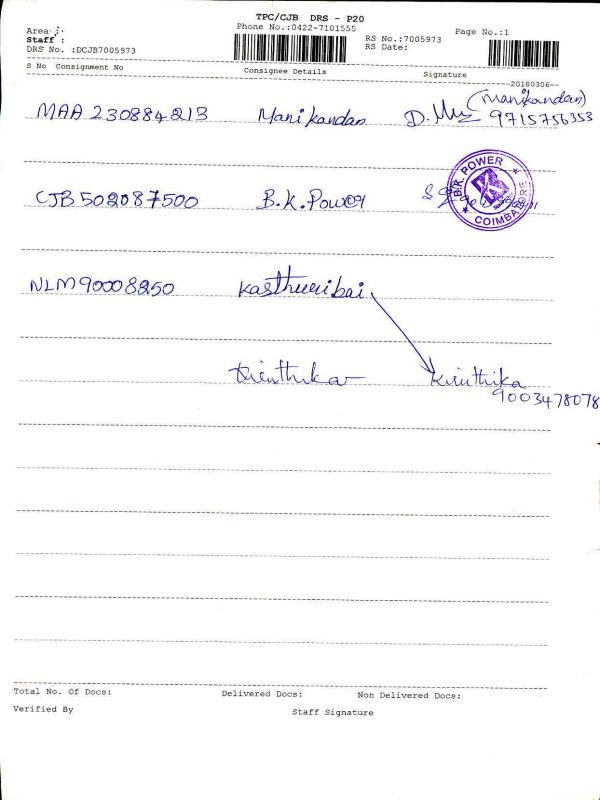 TPC/CJB DRS - P20
Phone No.:0422-7101555
Page No.:1
Area :
Staff :
RS No.:7005973
DRS No. :DCJB7005973
RS Date:
S No Consignment No Consignee Details Signature
20180306
MAA 230884213 Manikandan D. (Manikandan)
9715756353
CJB 502087500 B.K. Power
B.K. POWER COIMBATORE
NLM90008250 Kasthuribai
Kirithika Kirithika
9003478078
Total No. Of Docs: Delivered Docs: Non Delivered Docs:
Verified By Staff Signature